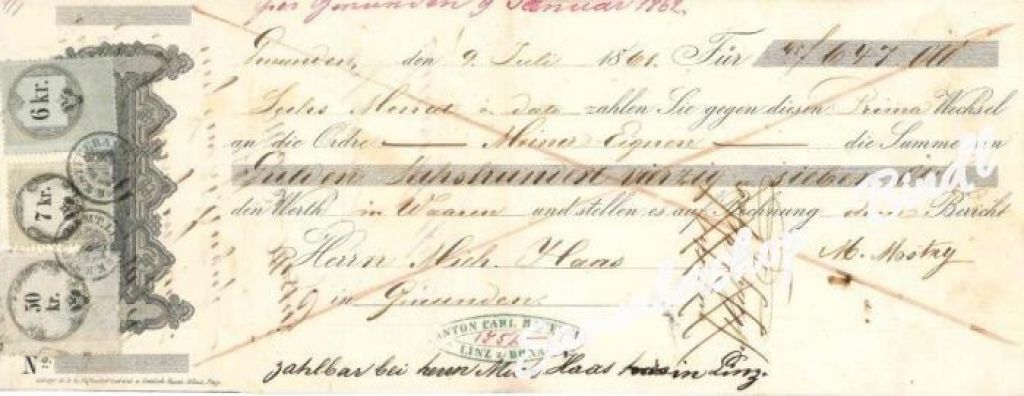 pro Gmunden 9 Januar 1862.
Gmunden, den 9. Juli 1861. Für f 647 ÖW
Sechs Monat a dato zahlen Sie gegen diesen Prima Wechsel
an die Ordre Meiner Eignen die Summe von
Gulden Sechshundert vierzig sieben
den Werth in Waaren und stellen es auf Rechnung ohne Bericht
Herrn Mich. Haas
in Gmunden
zahlbar bei Herrn Mich. Haas in Linz.
6 kr.
7 kr.
50 kr.
ANTON CARL
1856
LINZ a/DONAU
No.